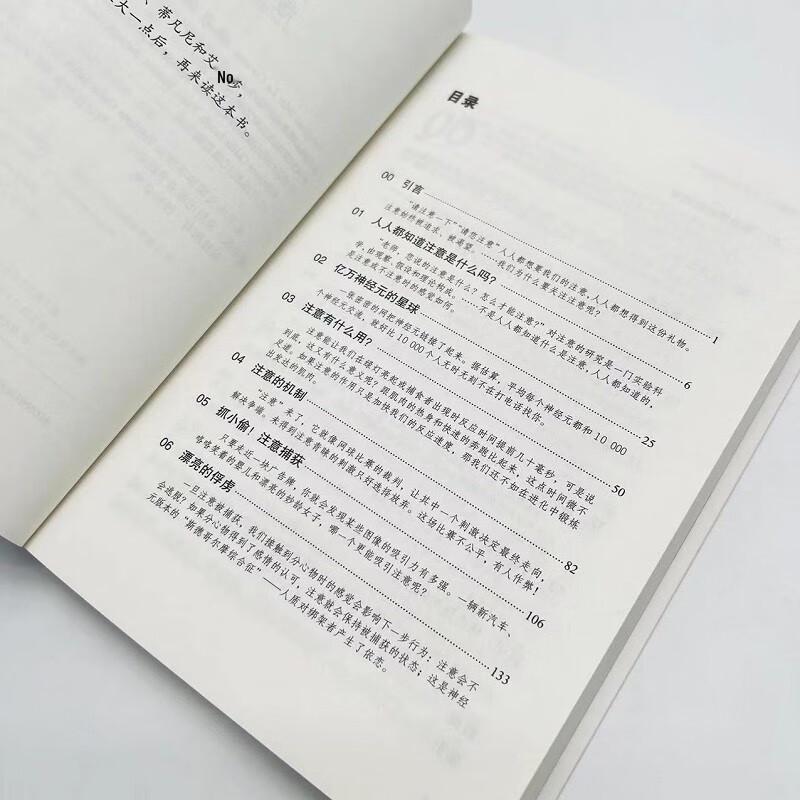 、蒂凡尼和艾No莎,
大一点后,再来读这本书。
目录
00 引言 1
“请注意一下”“请您注意”人人都想要我们的注意,人人都想得到这份礼物。
注意始终被追求、被渴望。……我们为什么要关注注意呢?
01 人人都知道注意是什么吗? 6
“老师,您说的注意是什么?怎么才能注意?”对注意的研究是一门实验科
学,由观察、假设和理论构成。……不是人人都知道什么是注意,人人都知道的,
是注意或不注意时的感觉如何。
02 亿万神经元的星球 25
一张密密的网把神经元链接了起来。据估算,平均每个神经元都和 10 000
个神经元交流,就好比 10 000 个人无时无刻不在打电话找你。
03 注意有什么用? 50
注意能让我们在绿灯亮起或捕食者出现时反应时间提前几十毫秒,可是说
到底,这又有什么意义呢?跟肌肉的热身和快速的奔跑比起来,这点时间微不
足道。如果注意的作用只是加快我们的反应速度,那我们还不如在进化中锻炼
出发达的肌肉。
04 注意的机制 82
“注意”来了,它就像网球比赛的裁判,让其中一个刺激决定最终走向,
解决争端。未得到注意青睐的刺激只好选择放弃。这场比赛不公平,有人作弊!
05 抓小偷!注意捕获 106
只要走近一块广告牌,你就会发现某些图像的吸引力有多强。一辆新汽车、
咯咯笑着的婴儿和漂亮的妙龄女子,哪一个更能吸引注意呢?
06 漂亮的俘虏 133
一旦注意被捕获,我们接触到分心物时的感觉会影响下一步行为:注意会不
会逃脱?如果分心物得到了感情的认可,注意就会保持被捕获的状态;这是神经
元版本的“斯德哥尔摩综合征”——人质对绑架者产生了依恋。